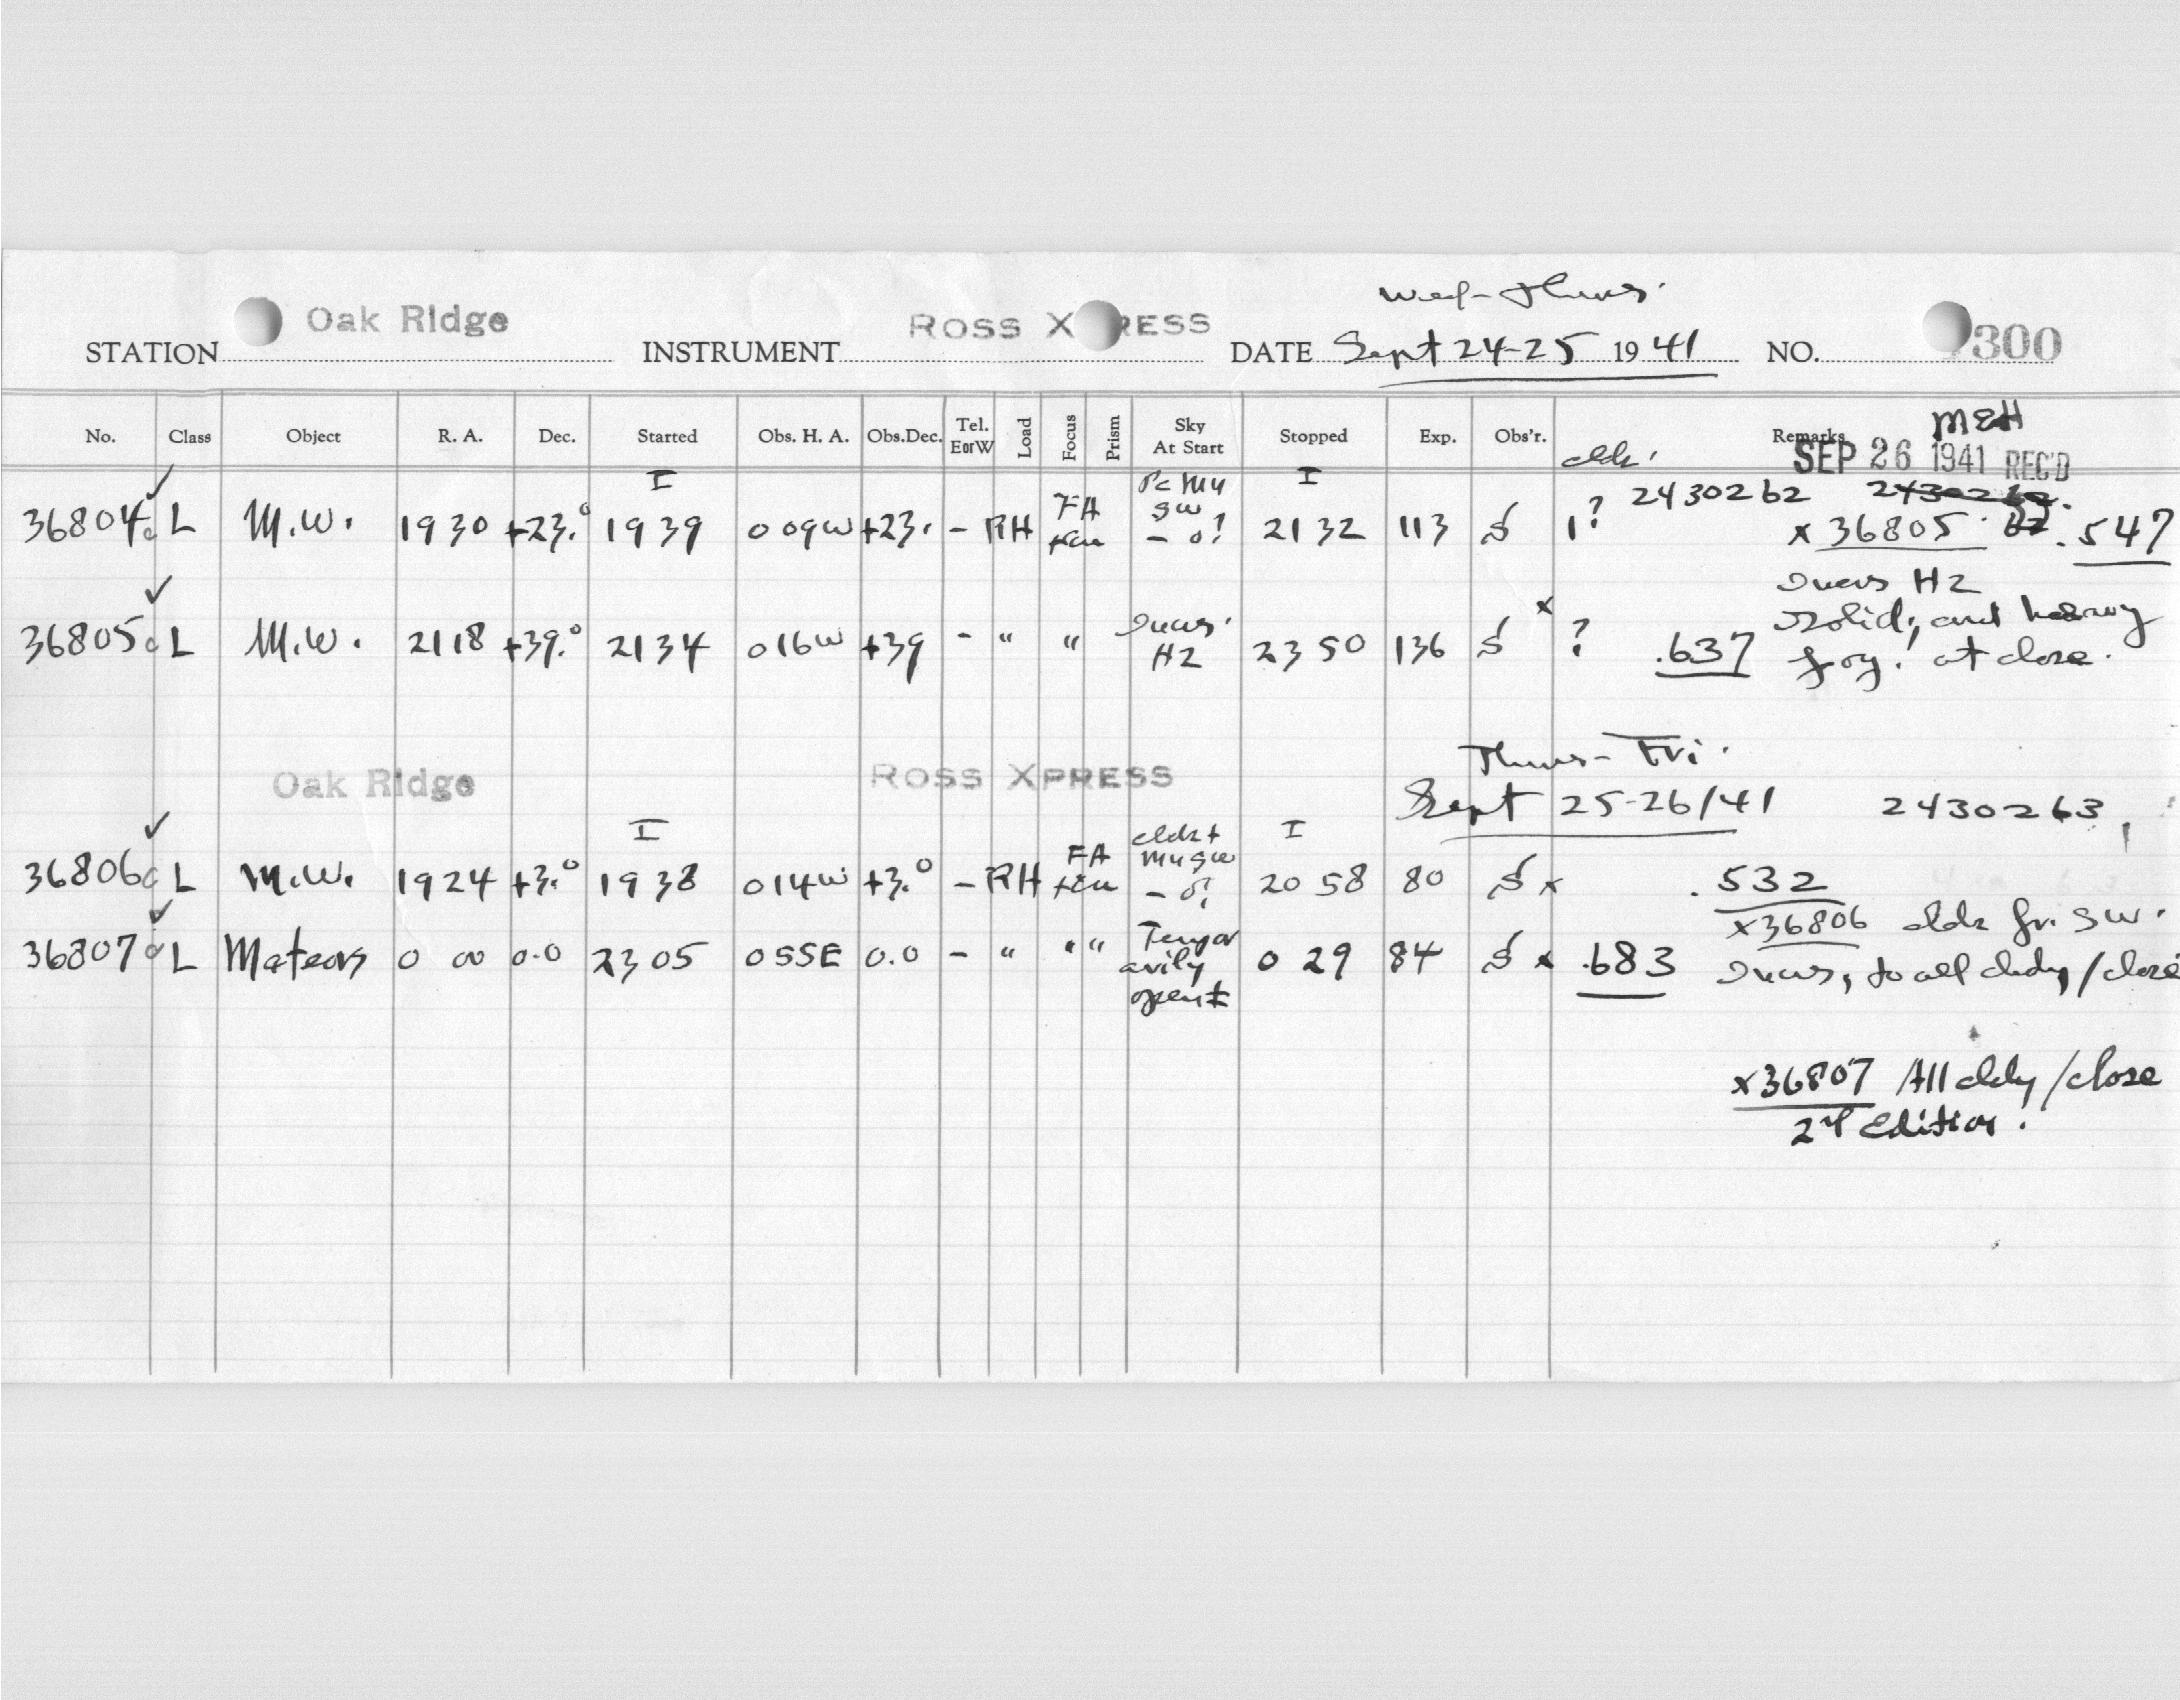 Wed-Thurs.
STATION Oak Ridge INSTRUMENT ROSS X RESS DATE Sept 24-25 19 41 NO. 300
No. Class Object R. A. Dec. Started Obs. H. A. Obs.Dec. Tel. EorW Load Focus Prism Sky At Start Stopped Exp. Obs'r. Remarks
MEH
SEP 26 1941 REC'D
clds.
I I
36804 L M.W. 1930 +23.° 1939 0 09W +23. - RH FA SW - 0? 2132 113 S 1? 2430262
x 36805 .547
36805 L M.W. 2118 +39.° 2134 0 16W +39 - " " HZ 2350 136 S x ? .637
HZ
solid, and heavy
fog! at close.
Oak Ridge ROSS XPRESS
Thurs-Fri.
Sept 25-26/41 2430263
I I
36806 L M.W. 1924 +3.° 1938 0 14W +3.° - RH FA clds + - 0? 20 58 80 S x .532
x36806 clds fr. SW.
36807 L Meteors 0 00 0.0 2305 0 55E 0.0 - " " " Tempor arily open ± 0 29 84 S x .683
to all cldy/close
x36807 All cldy/close
2nd Edition.